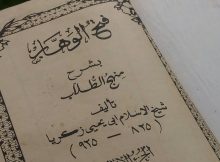 فتح الوهاب
بشرح
منهج الطلاب
تأليف
شيخ الإسلام أبي يحيى زكريا
(٨٢٥ - ٩٢٥)